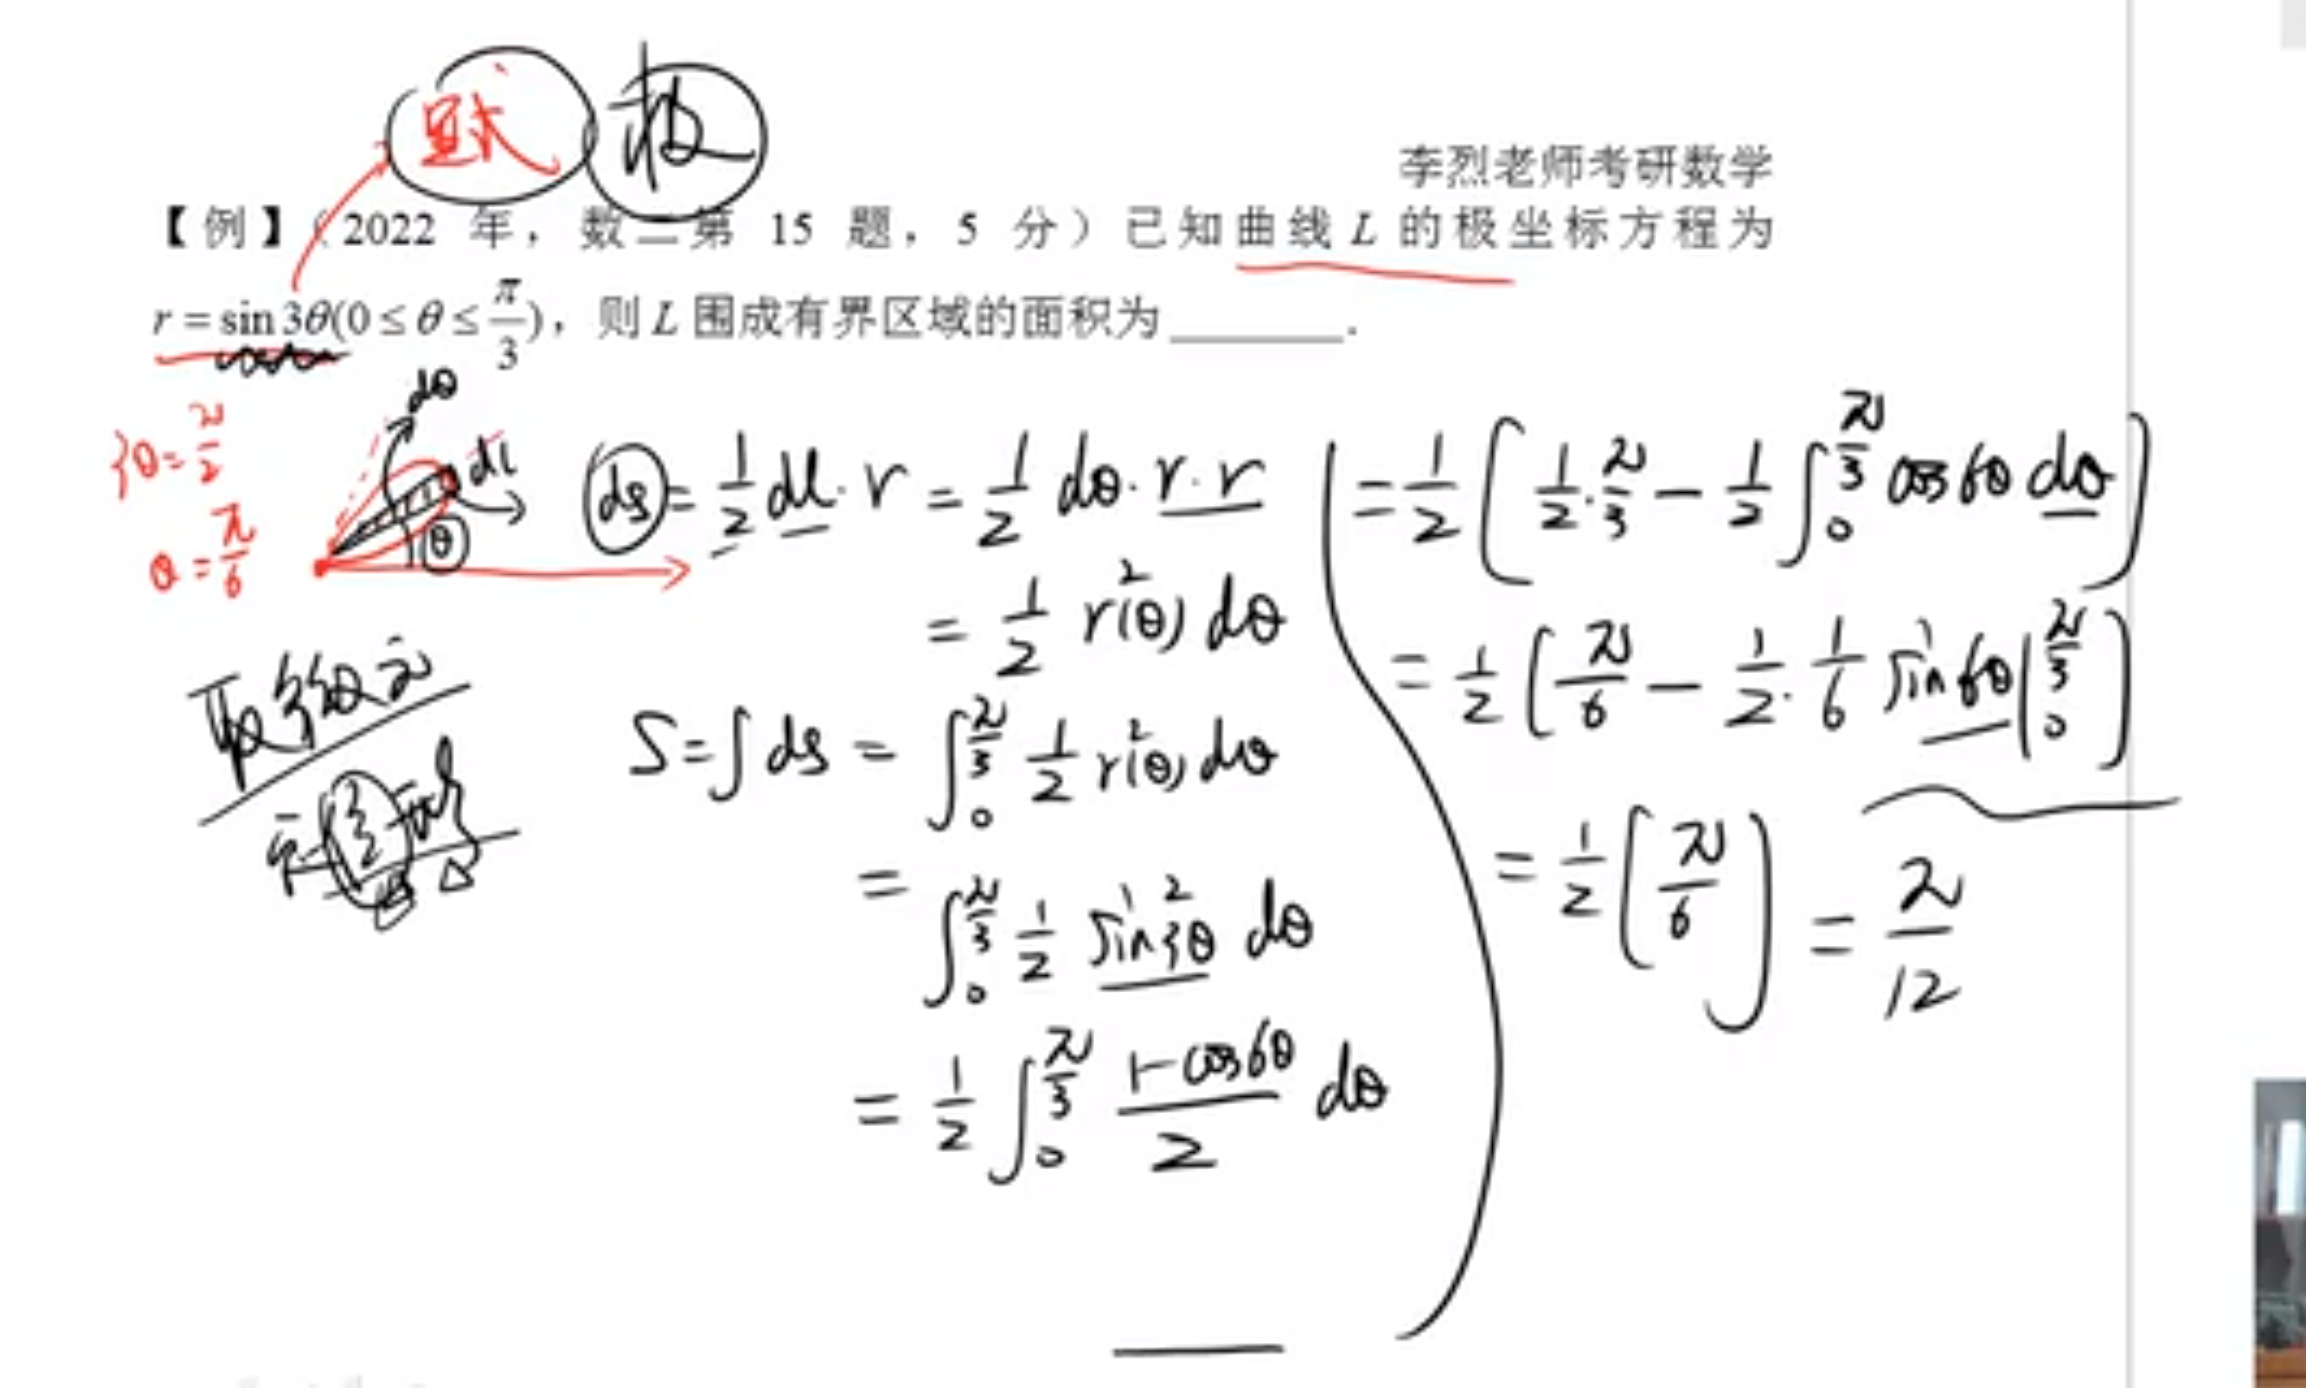 极
李烈老师考研数学
【例】（2022 年，数二第 15 题，5 分）已知曲线 L 的极坐标方程为
r = sin 3θ(0 ≤ θ ≤ π/3)，则 L 围成有界区域的面积为________.
3θ = π/2
θ = π/6
dθ
dl
θ
ds = 1/2 dl · r = 1/2 dθ · r · r
= 1/2 r²(θ) dθ
S = ∫ ds = ∫₀^{π/3} 1/2 r²(θ) dθ
= ∫₀^{π/3} 1/2 sin²3θ dθ
= 1/2 ∫₀^{π/3} (1 - cos6θ)/2 dθ
= 1/2 [ 1/2 · π/3 - 1/2 ∫₀^{π/3} cos 6θ dθ ]
= 1/2 [ π/6 - 1/2 · 1/6 sin 6θ |₀^{π/3} ]
= 1/2 [ π/6 ] = π/12